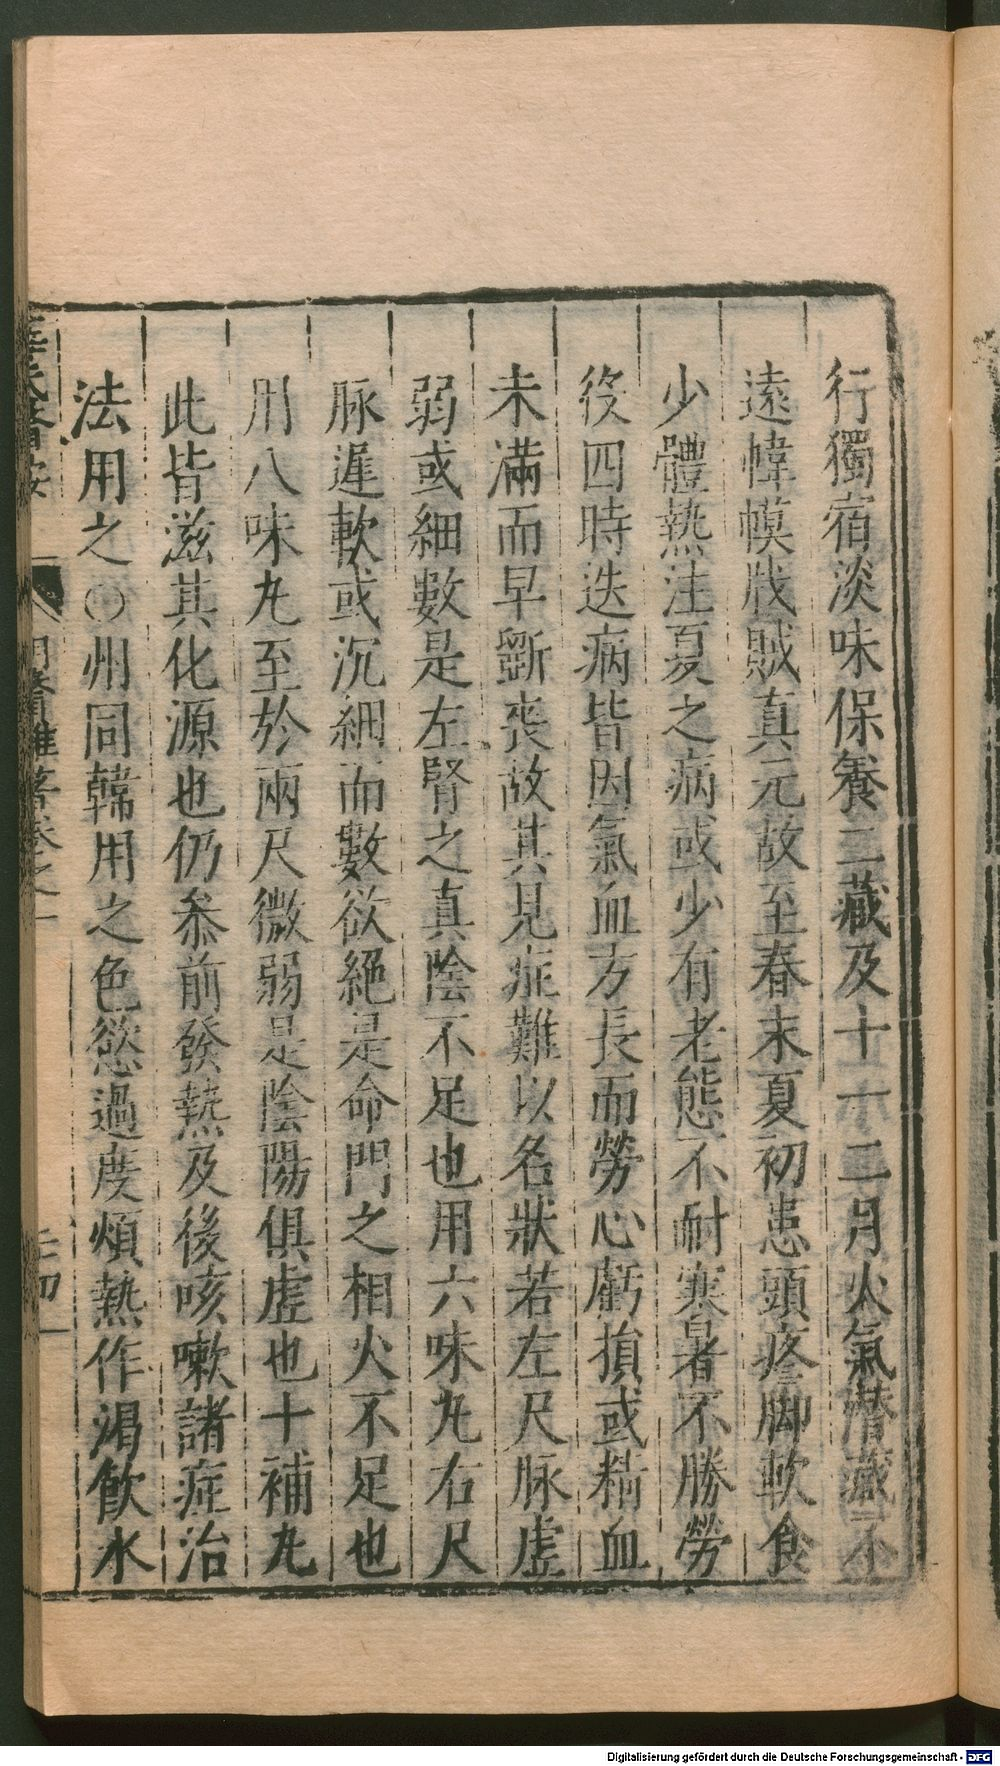 行獨宿淡味保養二藏及十一二月火氣潛藏不
遠幃幙戕賊真元故至春末夏初患頭疼脚軟食
少體熱注夏之病或少有老態不耐寒暑不勝勞
役四時迭病皆因氣血方長而勞心虧損或精血
未滿而早斵喪故其見症難以名狀若左尺脉虛
弱或細數是左腎之真陰不足也用六味丸右尺
脉遲軟或沉細而數欲絕是命門之相火不足也
用八味丸至於兩尺微弱是陰陽俱虛也十補丸
此皆滋其化源也仍叅前發熱及後咳嗽諸症治
法用之〇州同韓用之色慾過度煩熱作渴飲水
薛氏醫按
明醫雜著卷之一
Digitalisierung gefördert durch die Deutsche Forschungsgemeinschaft - DFG